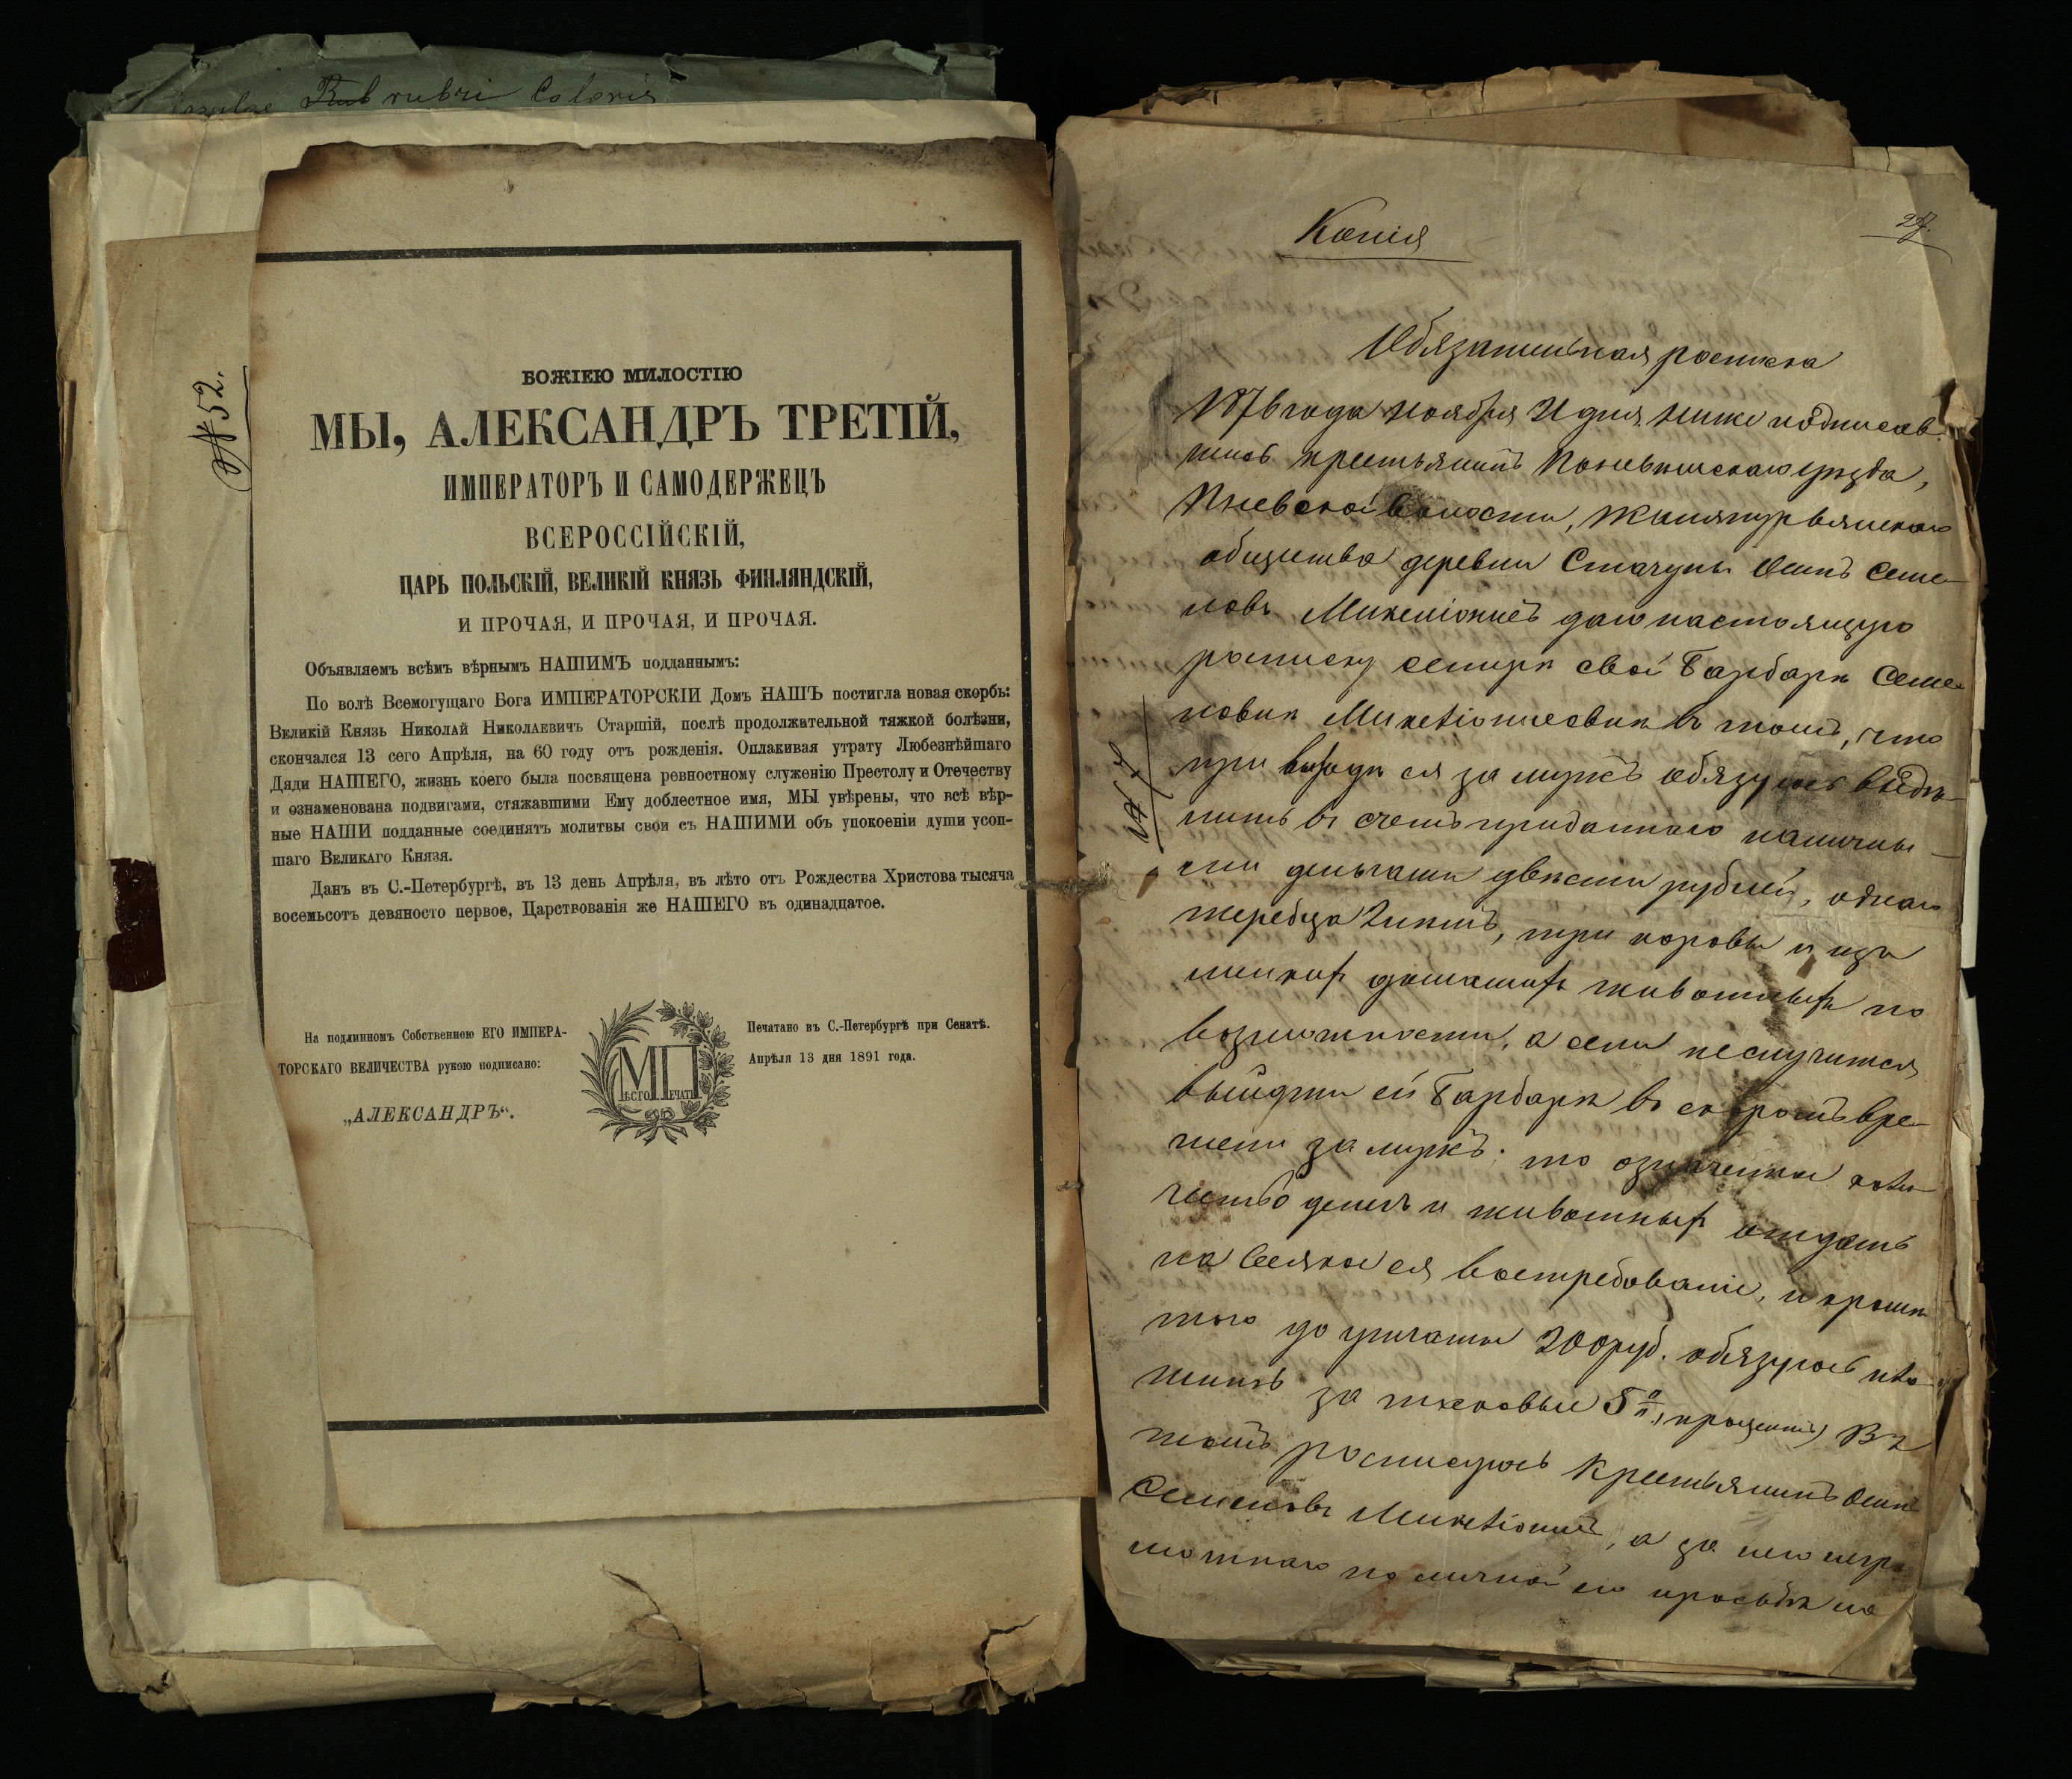 rubri Coloris
№ 52.
БОЖІЕЮ МИЛОСТІЮ
МЫ, АЛЕКСАНДРЪ ТРЕТІЙ,
ИМПЕРАТОРЪ И САМОДЕРЖЕЦЪ
ВСЕРОССІЙСКІЙ,
ЦАРЬ ПОЛЬСКІЙ, ВЕЛИКІЙ КНЯЗЬ ФИНЛЯНДСКІЙ,
И ПРОЧАЯ, И ПРОЧАЯ, И ПРОЧАЯ.
Объявляемъ всѣмъ вѣрнымъ НАШИМЪ подданнымъ:
По волѣ Всемогущаго Бога ИМПЕРАТОРСКІЙ Домъ НАШЪ постигла новая скорбь:
Великій Князь Николай Николаевичъ Старшій, послѣ продолжительной тяжкой болѣзни,
скончался 13 сего Апрѣля, на 60 году отъ рожденія. Оплакивая утрату Любезнѣйшаго
Дяди НАШЕГО, жизнь коего была посвящена ревностному служенію Престолу и Отечеству
и ознаменована подвигами, стяжавшими Ему доблестное имя, МЫ увѣрены, что всѣ вѣр-
ные НАШИ подданные соединятъ молитвы свои съ НАШИМИ объ упокоеніи души усоп-
шаго Великаго Князя.
Данъ въ С.-Петербургѣ, въ 13 день Апрѣля, въ лѣто отъ Рождества Христова тысяча
восемьсотъ девяносто первое, Царствованія же НАШЕГО въ одинадцатое.
На подлинномъ Собственною ЕГО ИМПЕРА-
ТОРСКАГО ВЕЛИЧЕСТВА рукою подписано:
„АЛЕКСАНДРЪ“.
МѢСТО ПЕЧАТИ
Печатано въ С.-Петербургѣ при Сенатѣ.
Апрѣля 13 дня 1891 года.
27.
Копія
Обязательная росписка
1876 года Ноября 21 дня, ниже подписав-
шись крестьянинъ Поневѣжскаго уѣзда,
волости,
общества деревни Стачуны Осипъ Семе-
новъ даю настоящую
росписку сестрѣ своей Барбарѣ Семе-
новнѣ въ томъ, что
при выходѣ ея за мужъ обязуюсь выдѣ-
лить въ счетъ приданнаго наличны-
ми деньгами двѣсти рублей, одного
жеребца 2 лѣтъ, три коровы и изъ
мелкихъ домашнихъ животныхъ по
возможности, а если неслучится
выйдти ей Барбарѣ въ скоромъ вре-
мени за мужъ, то означенное коли-
чество денегъ и животныхъ отдать
на всякое ея востребованіе, и кромѣ
того до уплаты 200 руб. обязуюсь пла-
тить за таковые 5% (процентъ) Въ
томъ росписуюсь Крестьянинъ Осипъ
Семеновъ а за него негра-
мотнаго по личной его просьбѣ